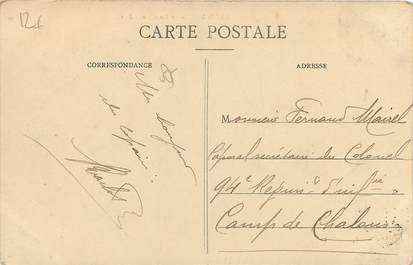 CARTE POSTALE
CORRESPONDANCE
ADRESSE
Un bonjour
du copain.
Monsieur Fernand Mairel
Caporal secrétaire du Colonel
94e Régim.t d'inf.ie
Camp de Chalons